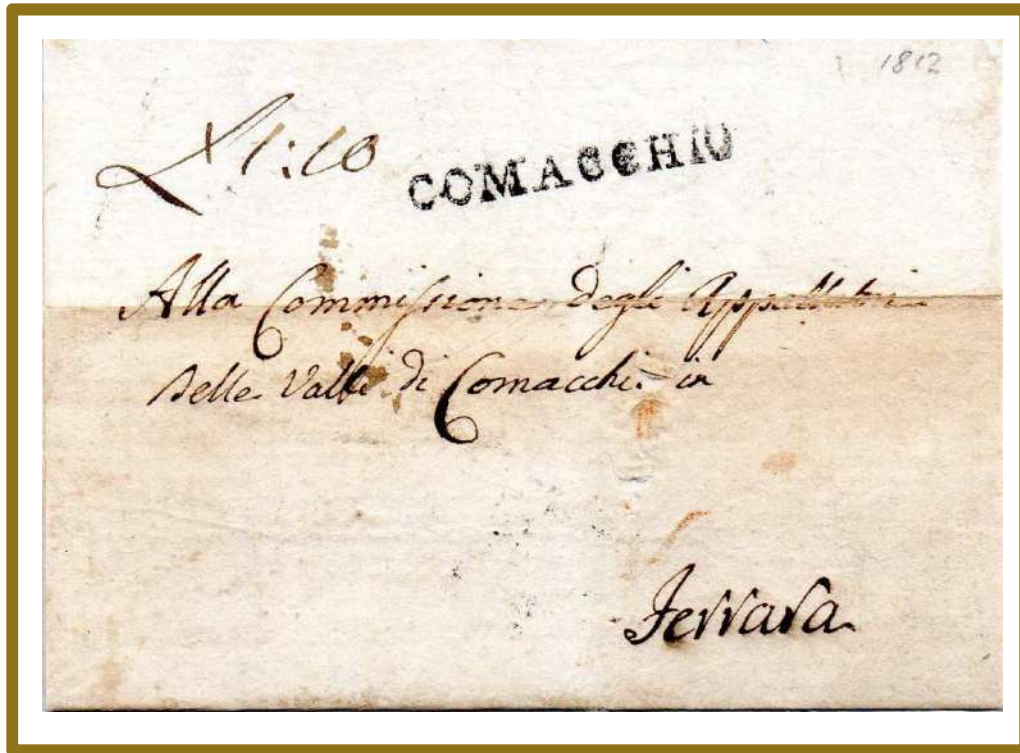 1812
L 1:10
COMACCHIO
Alla Commissione degli Appaltatori
delle Valli di Comacchio in
Ferrara